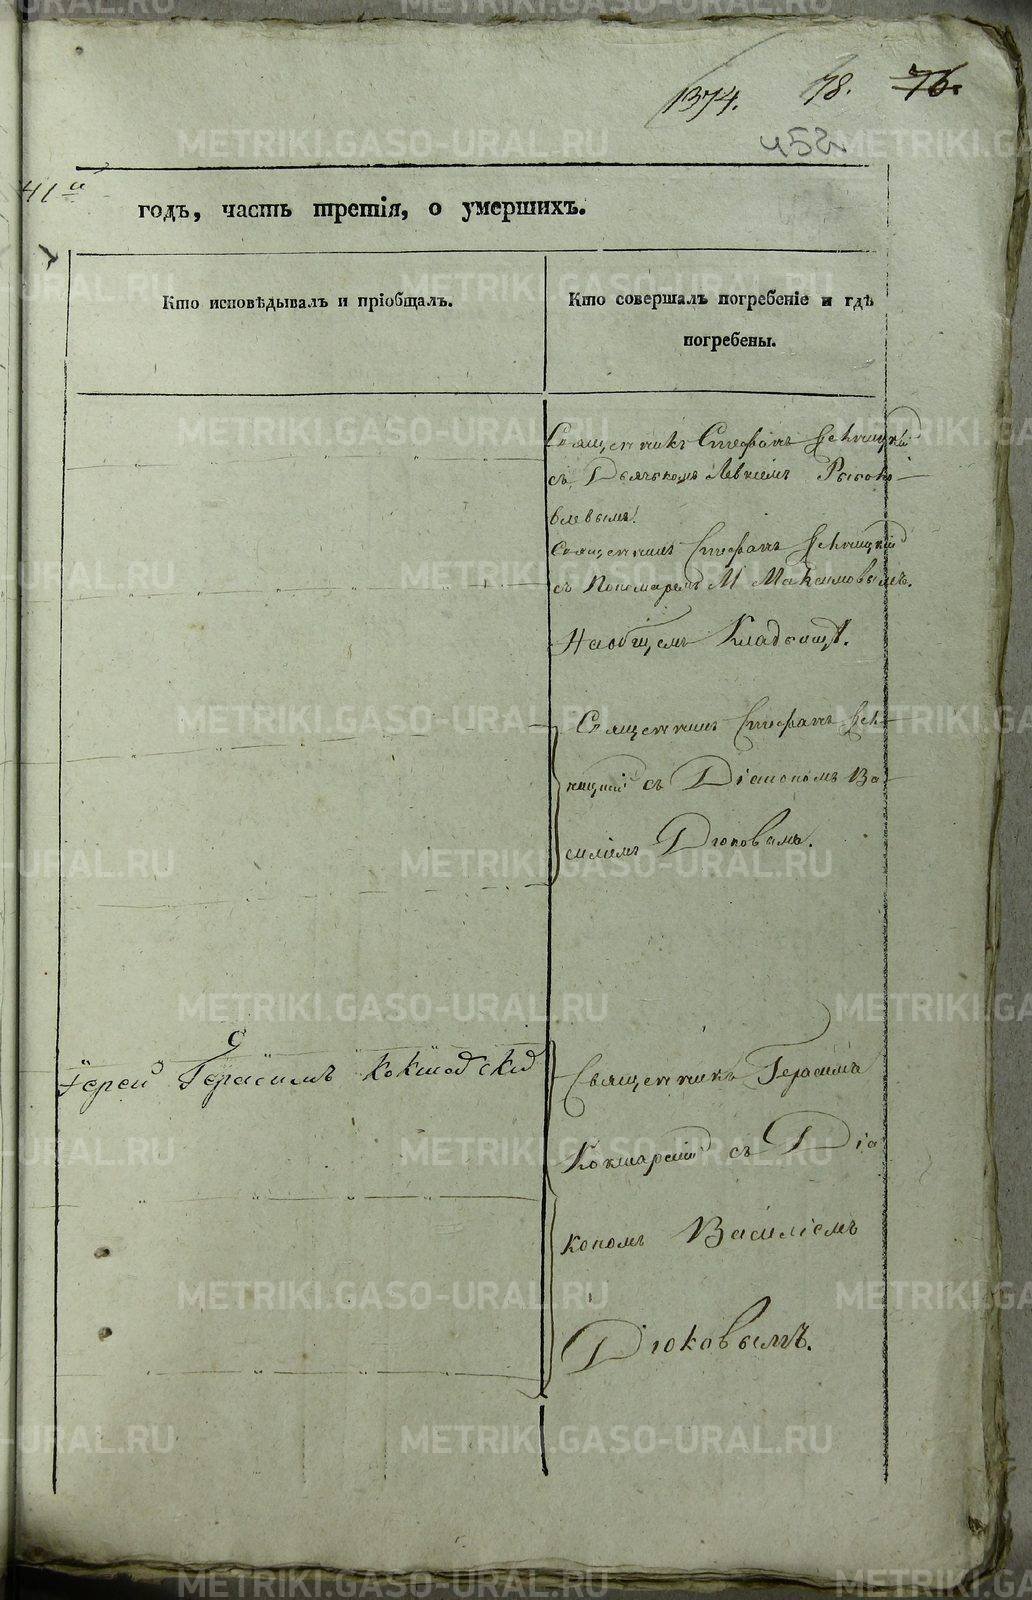 1374. 78. 76.
452
41 го
годъ, часть третія, о умершихъ.
Кто исповѣдывалъ и пріобщалъ.
Кто совершалъ погребеніе и гдѣ
погребены.
Священникъ Стефанъ
съ Дьячкомъ Левкіемъ
Священникъ Стефанъ
съ Пономаремъ М Максимовымъ.
На общемъ Кладбищѣ.
Священникъ Стефанъ
съ Діакономъ Ва
силіемъ Дюковымъ.
Іерей Герасимъ
Священникъ Герасимъ
Кокшарскій съ Діа
кономъ Василіемъ
Дюковымъ.
METRIKI.GASO-URAL.RU